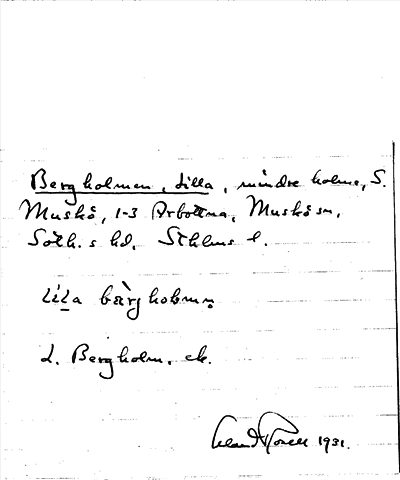 Bergholmen, Lilla, mindre holme, S.
Muskö, 1-3 Arbottna, Muskö sn,
Soth. s hd, Sthlms l.
lila bärgholmen
L. Bergholm, ek.
1931.